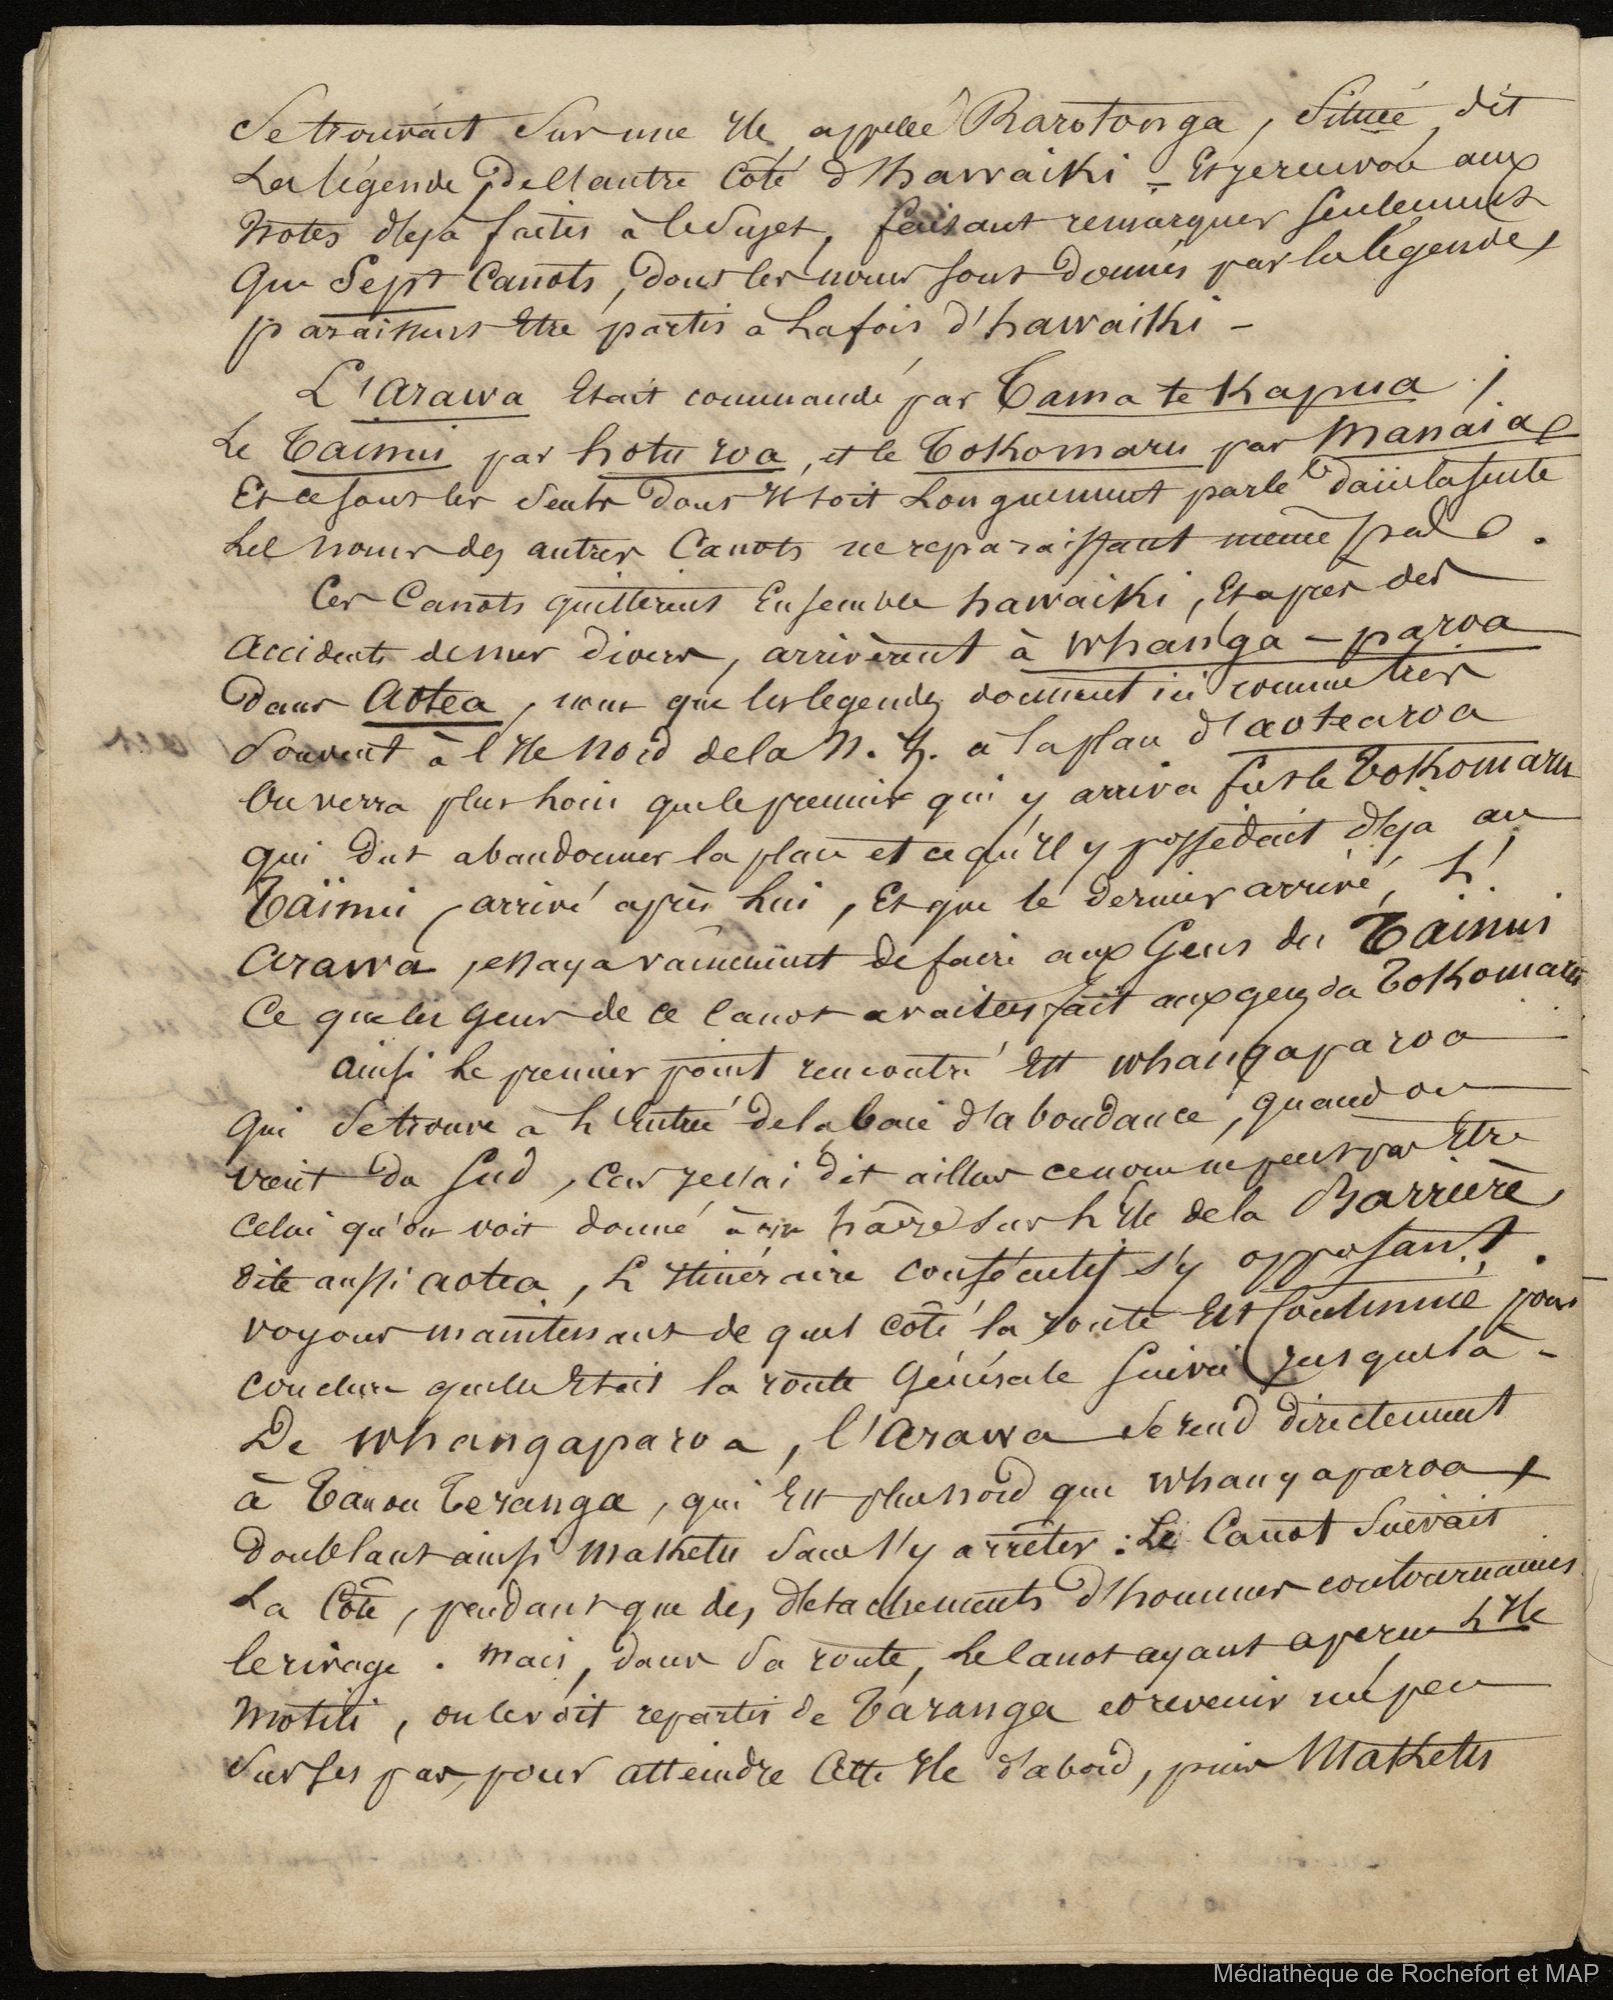 Se trouvait sur une Ile, appelée Rarotonga, Située, dit
La légende, De l'autre Côté d'hawaiki – Et je renvoie aux
Notes déjà faites à ce Sujet, faisant remarquer seulement
Que Sept Canots, dont les noms sont donnés par la légende,
paraissent Etre partis à La fois d'hawaiki –
L'Arawa Etait commandé par Tama te Kapua ;
Le Taïnui par hotu roa, et le Tokomaru par Manaia,
Et ce sont les seuls dont Il soit Longuement parlé dans la suite
Les noms des autres Canots ne reparaissant même pas.
Ces Canots quittèrent Ensemble hawaiki, Et après des
Accidents de mer divers, arrivèrent à Whanga-paroa
dans Aotea, nom que les legendes donnent ici comme très
Souvent à l'Ile Nord de la N. Z. à la place d'aotearoa
On verra plus Loin que le premier qui y arriva fut le Tokomaru
qui Dut abandonner la place et ce qu'Il y possédait déjà au
Taïnui, arrivé après Lui, Et que le Dernier arrivé, L'
Arawa, essaya vainement de faire aux Gens du Taïnui
Ce que les Gens de ce Canot avaient fait aux gens du Tokomaru
Ainsi Le premier point rencontré Est Whangaparoa
Qui Se trouve à L'Entrée de la baie d'abondance, quand on
vient du Sud, Car je l'ai dit ailleurs ce nom ne peut pas Etre
Celui qu'on voit donné à un hâvre sur L'Ile de la Barrière,
Dite aussi aotea, L'Itinéraire consécutif s'y opposant.
voyons maintenant de quel côté la route Est Continuée pour
conclure quelle Etait la route Générale suivie jusque là –
De Whangaparoa, l'Arawa se rend directement
à Tau ou Teranga, qui Est plus nord que Whangaparoa,
Doublant ainsi Maketu sans s'y arrêter : Le Canot Suivait
La Côte, pendant que des détachements d'hommes contournaient
le rivage. Mais, dans sa route, Le Canot ayant aperçu L'Ile
Motiti, on le voit repartir de Taranga et revenir un peu
sur ses pas, pour atteindre Cette Ile d'abord, puis Maketu
Médiathèque de Rochefort et MAP